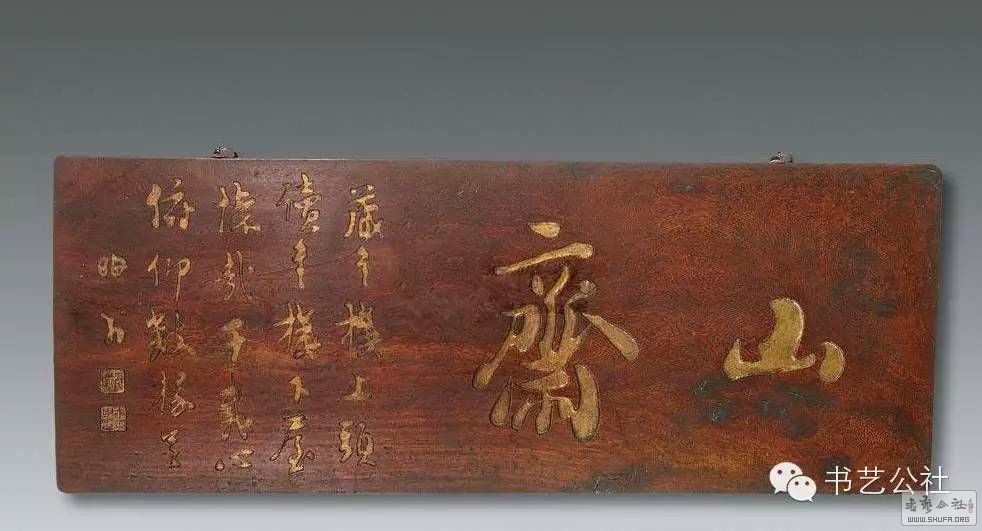 山齋
藏之樓上頭
讀之樓下屋
懷哉千載心
俯仰數椽足
书艺公社
书艺公社
WWW.SHUFA.ORG